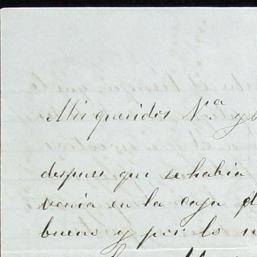 Mis queridos N.ª y
despues que se habia
venia en la caja d
bueno y por lo